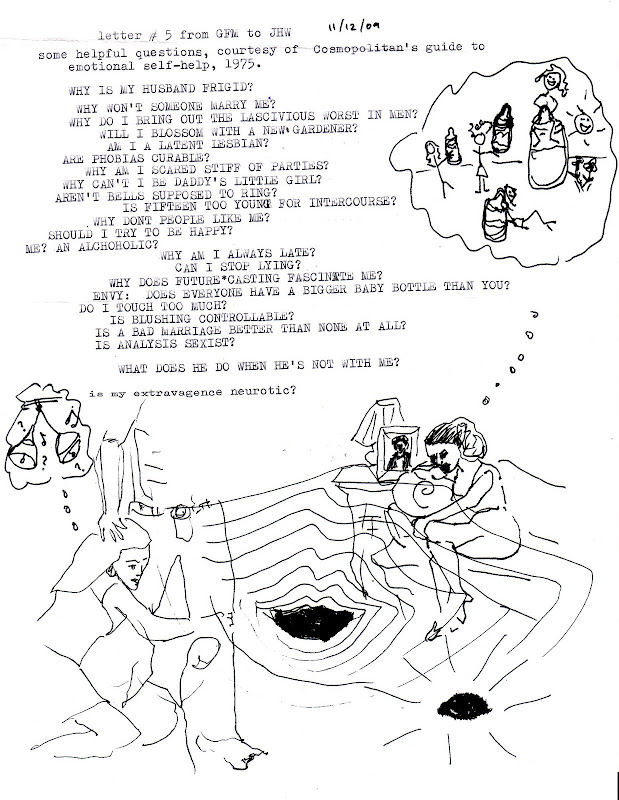 letter # 5 from GFM to JHW 11/12/09
some helpful questions, courtesy of Cosmopolitan's guide to
emotional self-help, 1975.
WHY IS MY HUSBAND FRIGID?
WHY WON'T SOMEONE MARRY ME?
WHY DO I BRING OUT THE LASCIVIOUS WORST IN MEN?
WILL I BLOSSOM WITH A NEW GARDENER?
AM I A LATENT LESBIAN?
ARE PHOBIAS CURABLE?
WHY AM I SCARED STIFF OF PARTIES?
WHY CAN'T I BE DADDY'S LITTLE GIRL?
AREN'T BELLS SUPPOSED TO RING?
IS FIFTEEN TOO YOUNG FOR INTERCOURSE?
WHY DONT PEOPLE LIKE ME?
SHOULD I TRY TO BE HAPPY?
ME? AN ALCHOHOLIC?
WHY AM I ALWAYS LATE?
CAN I STOP LYING?
WHY DOES FUTURE*CASTING FASCINATE ME?
ENVY: DOES EVERYONE HAVE A BIGGER BABY BOTTLE THAN YOU?
DO I TOUCH TOO MUCH?
IS BLUSHING CONTROLLABLE?
IS A BAD MARRIAGE BETTER THAN NONE AT ALL?
IS ANALYSIS SEXIST?
WHAT DOES HE DO WHEN HE'S NOT WITH ME?
is my extravagence neurotic?
? ?
?